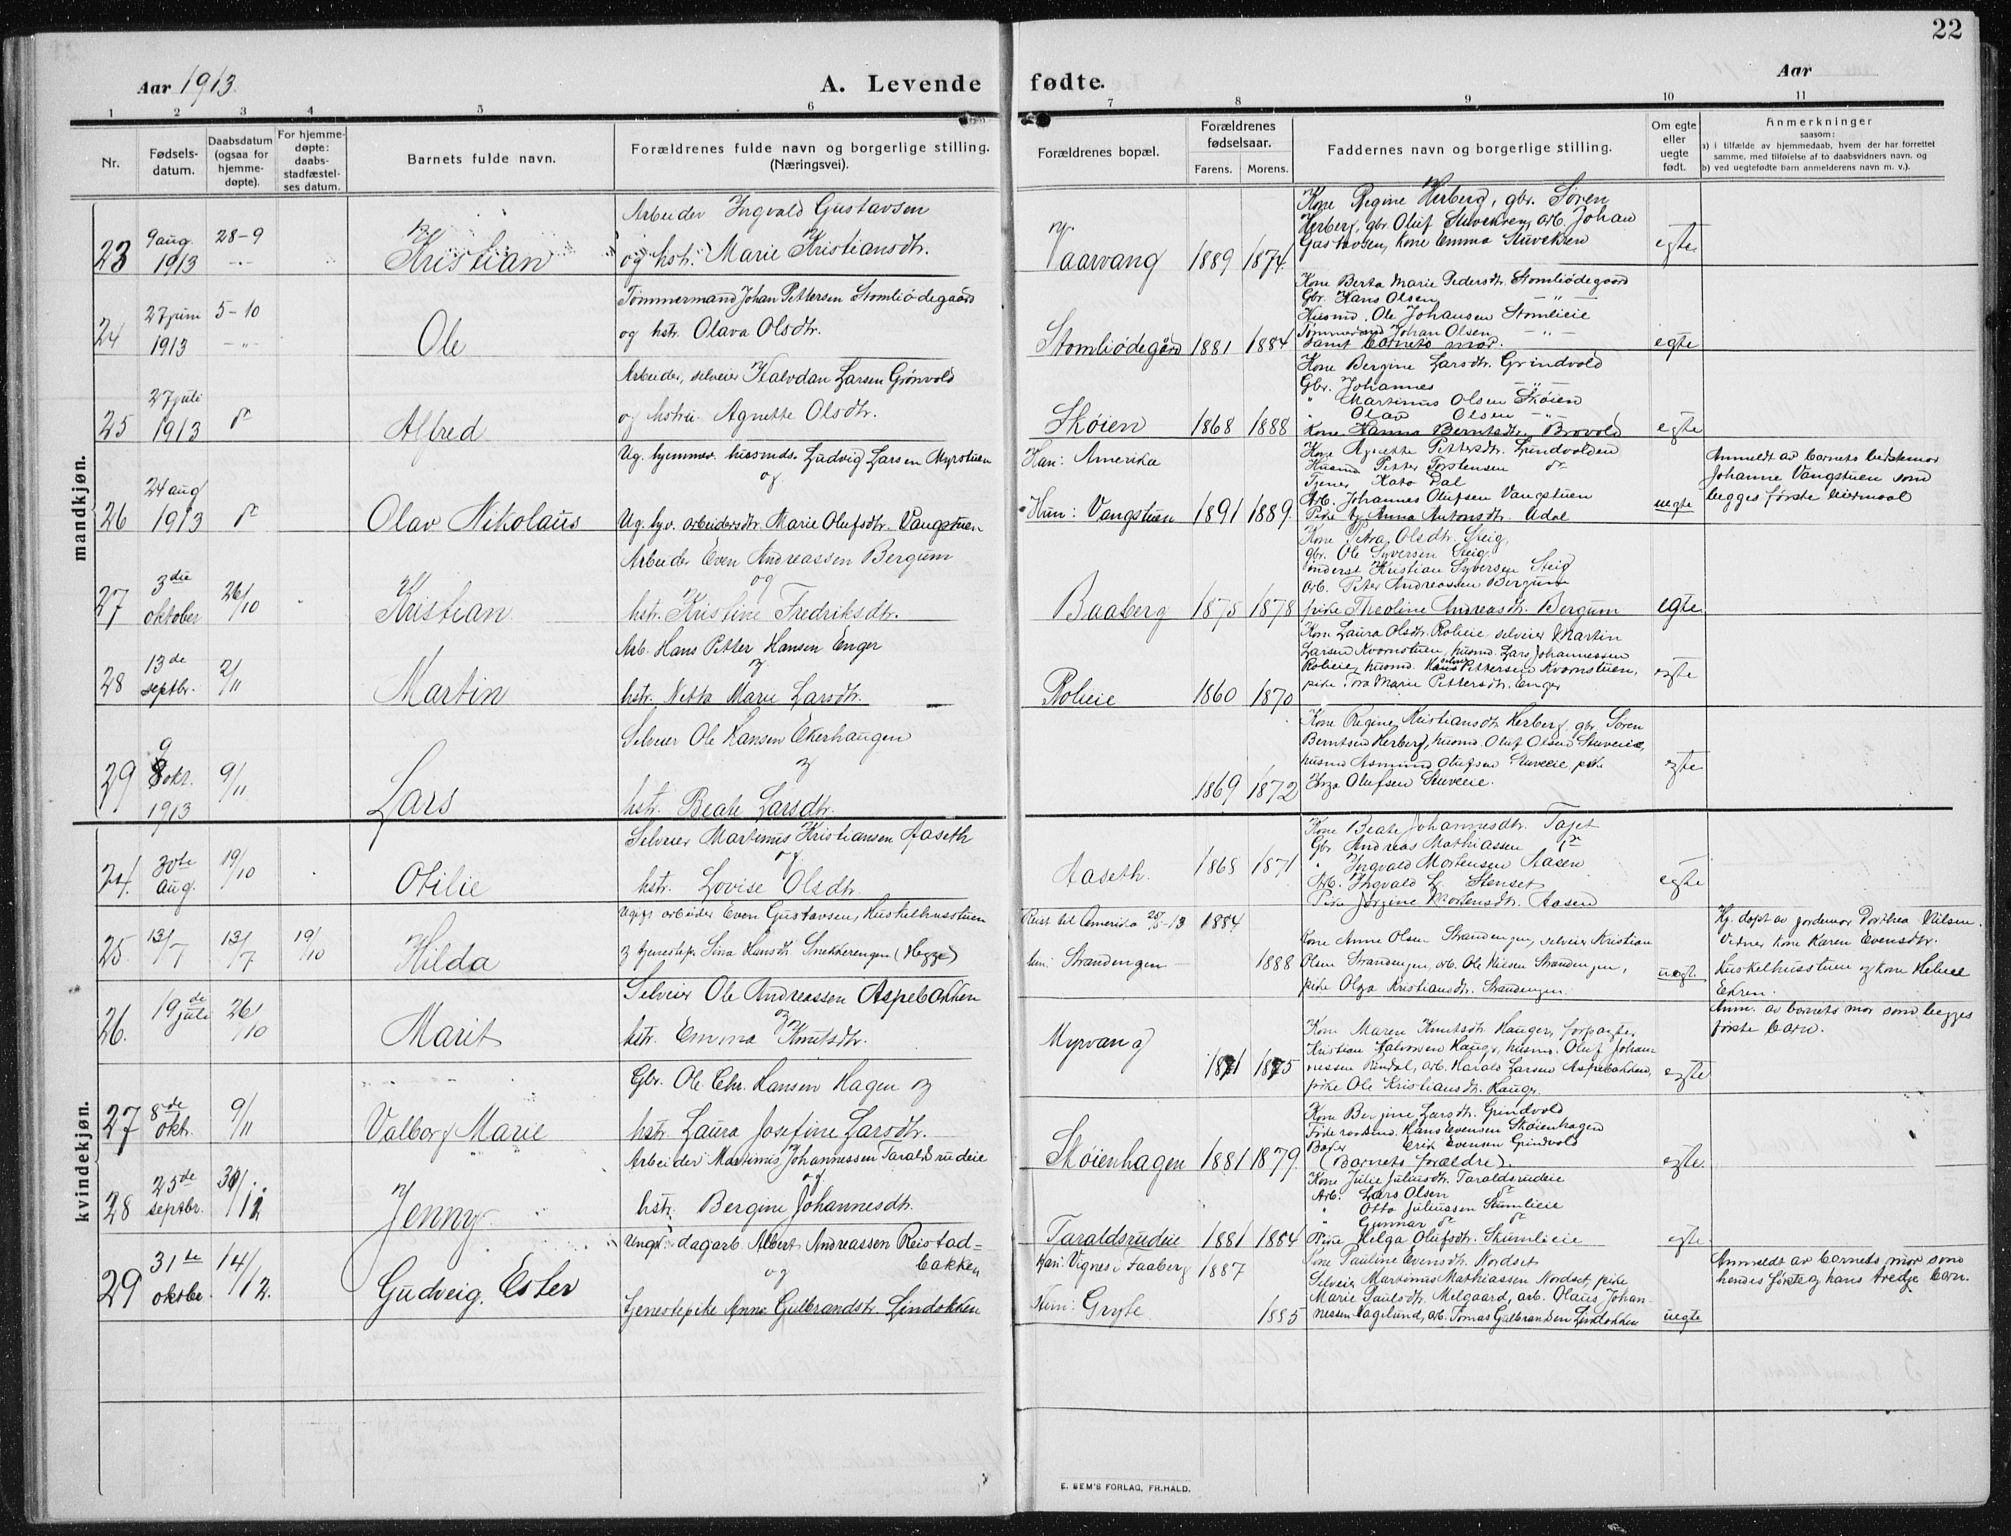 22
Aar 1913.
A. Levende fødte.
Aar
1 2 3 4 5 6 7 8 9 10 11
Nr.
Fødsels-
datum.
Daabsdatum
(ogsaa for
hjemme-
døpte).
For hjemme-
døpte:
daabs-
stadfæstel-
ses datum.
Barnets fulde navn.
Forældrenes fulde navn og borgerlige stilling.
(Næringsvei).
Forældrenes bopæl.
Forældrenes
fødselsaar.
Farens. Morens.
Faddernes navn og borgerlige stilling.
Om egte
eller
uegte
født.
Anmerkninger
saasom:
a) i tilfælde av hjemmedaab, hvem der har forrettet
samme, med tilføielse af to daabsvidners navn, og
b) ved uegtefødte barn anmelderens navn m. v.).
mandkjøn.
23
9 aug.
1913
28-9
-"-
Kristian
Arbeider Ingvald Gustavsen
og hstr. Marie Kristiansdtr.
Vaarvang
1889 1874.
Kone Regine Herberg, gbr. Søren
Herberg, gbr. Oluf Stuvekven, arb. Johan
Gustavsen, kone Emma
egte
24
27 juni
1913
5-10
-"-
Ole
Tømmermand Johan Pettersen Stomliødegaard
og hstr. Olava Olsdtr.
Stomliødegård
1881 1884
Kone Berta Marie Pedersdtr. Stomliødegaard
Gbr. Hans Olsen -"-
Husmd. Ole Johansen Stomlieie
Tømmermd Johan Olsen -"-
samt barnets mor.
egte
25
27 juli
1913
do
Alfred
Arbeider, selveier Halvdan Larsen Grønvold
og hstru. Agnette Olsdtr.
Skøien
1868 1888
Kone Bergine Larsdtr. Grindvold
Gbr. Johannes -"-
" Martinus Olsen Skøien
" Olav Olsen -"-
Kone Hanna Berntsdtr. Brovold
egte
26
24 aug
1913
do
Olav Nikolaus
Ug. hjemmev. husmds. Ludvig Larsen Myrstuen
og
Ug. hjv. arbeidersdtr. Marie Olufsdtr. Vangstuen
Han: Amerika
Hun: Vangstuen
1891 1889.
Kone Agnette Pettersdtr. Lundvolden
Husmd Petter Torstensen do
Tjener Kato Dal
Arb. Johannes Olufsen Vangstuen
Pike Anna Antonsdtr. Udal
uegte
Anmeldt av barnets bedstemor
Johanne Vangstuen som
begges første leiermaal
27
3die
oktober
26/10
Kristian
Arbeider Even Andreassen Bergum
og
hstr. Kristine Fredriksdtr.
Baaberg
1875 1878
Kone Petra Olsdtr. Steig,
gbr. Ole Syversen Steig.
inderst Kristian Syversen Steig
arb. Peter Andreassen Bergum
pike Theoline Andreasdtr. Bergum
egte
28
13de
septbr.
2/11
Martin
Arb. Hans Petter Hansen Enger
og
hstr. Netta Marie Larsdtr.
Rolieie
1860 1870
Kone Laura Olsdtr. Rolieie selveier Martin
Larsen Kvornstuen, husmd. Lars Johannessen
Rolieie, husmd. Pettersen Kvornstuen,
pike Tora Marie Pettersdtr. Enger
egte
29
9
8 okt.
1913
9/11
Lars
Selveier Ole Hansen Ekerhaugen
og
hstr. Beate Larsdtr.
1869 1872
Kone Regine Kristiansdtr. Herberg, gbr. Søren
Berntsen Herberg, husmd. Oluf Olsen Stuveie,
husmd Asmund Olufsen Stuveie pike
Inga Olufsen Stuveie.
egte
kvindekjøn.
24.
30te
aug.
19/10
Otilie
Selveier Martinus Kristiansen Aaseth
og
hstr. Lovise Olsdtr.
Aaseth.
1868 1871
Kone Beate Johannesdtr. Tajet
Gbr Andreas Mathiassen do
" Ingvald Mortensen Aasen
Arb. Ingvald L. Stenset
Pike Jørgine Mortensdtr. Aasen
egte
25.
13/7
13/7
19/10
Hilda
Ugift arbeider Even Gustavsen, Huskelhusstuen
og tjenestep. Lina Hansdtr. Snekkerengen (Hegge)
Reist til Amerika 25/5-13
hun: Strandengen
1884
1888
Kone Anne Olsen Strandengen, selveier Kristian
Olsen Strandengen, arb. Ole Nilsen Strandengen,
pike Olga Kristiansdtr. Strandengen.
uegt.
Hj. døpt av jordemor Dorthea Nilsen.
Vidner kone Karen Evensdtr.
Huskelhusstuen og kone Helene
Ekren.
Anm. av barnets mor som begges
første barn.
26.
19de
juli
26/10
Marit
Selveier Ole Andreassen Aspebakken
og
hstr. Emma Knutsdtr.
Myrvang
1871 1875
Kone Maren Knutsdtr Hauger, forpagter
Kristian Halvorsen Hauger, husmd. Oluf Johan-
nessen Rindal, arb. Harald Larsen Aspebakken,
pike Ole Kristiansdtr. Hauger.
egte
27
8de
okt.
9/11
Valborg Marie
Gbr. Ole Chr. Hansen Hagen og
hstr. Laura Josefine Larsdtr.
Skøienhagen
1881 1879.
Kone Bergine Larsdtr. Grindvold
Føderaadsmd. Hans Evensen Skøienhagen
Baker Erik Evensen Grindvold
(Barnets forældre).
egte.
28
25de
septbr.
30/11
Jenny.
Arbeider Martinus Johannessen Taraldsrudeie
og
hstr. Bergine Johannesdtr.
Taraldsrudeie
1881 1884
Kone Julie Juliusdtr. Taraldsrudeie
Arb. Lars Olsen do
" Otto Juliussen Sumlieie
" Gunnar do do
Pike Helga Olufsdtr. Skumlieie
egte
29
31te
oktbe.
14/12.
Gudveig Ester
Ungk. dagarb. Albert Andreassen Reistad-
bakken
og
tjenestepike Anne Gulbrandstr. Lindokken
Han: Vignes i Faaberg
Hun: Gryte
1887
1885
Kone Pauline Evensdtr. Nordset
Selveier Martinus Mathiassen Nordset, pike
Marie Paulsdtr. Melgaard, arb. Olaus Johan-
nessen Hagelund, arb. Tomas Gulbrandsen Lindokken
uegte
Anmeldt av barnets mor som
hendes første og hans tredje barn.
E. SEM'S FORLAG, FR.HALD.